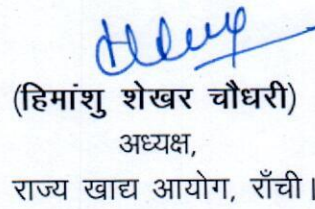 (हिमांशु शेखर चौधरी)
अध्यक्ष,
राज्य खाद्य आयोग, राँची।